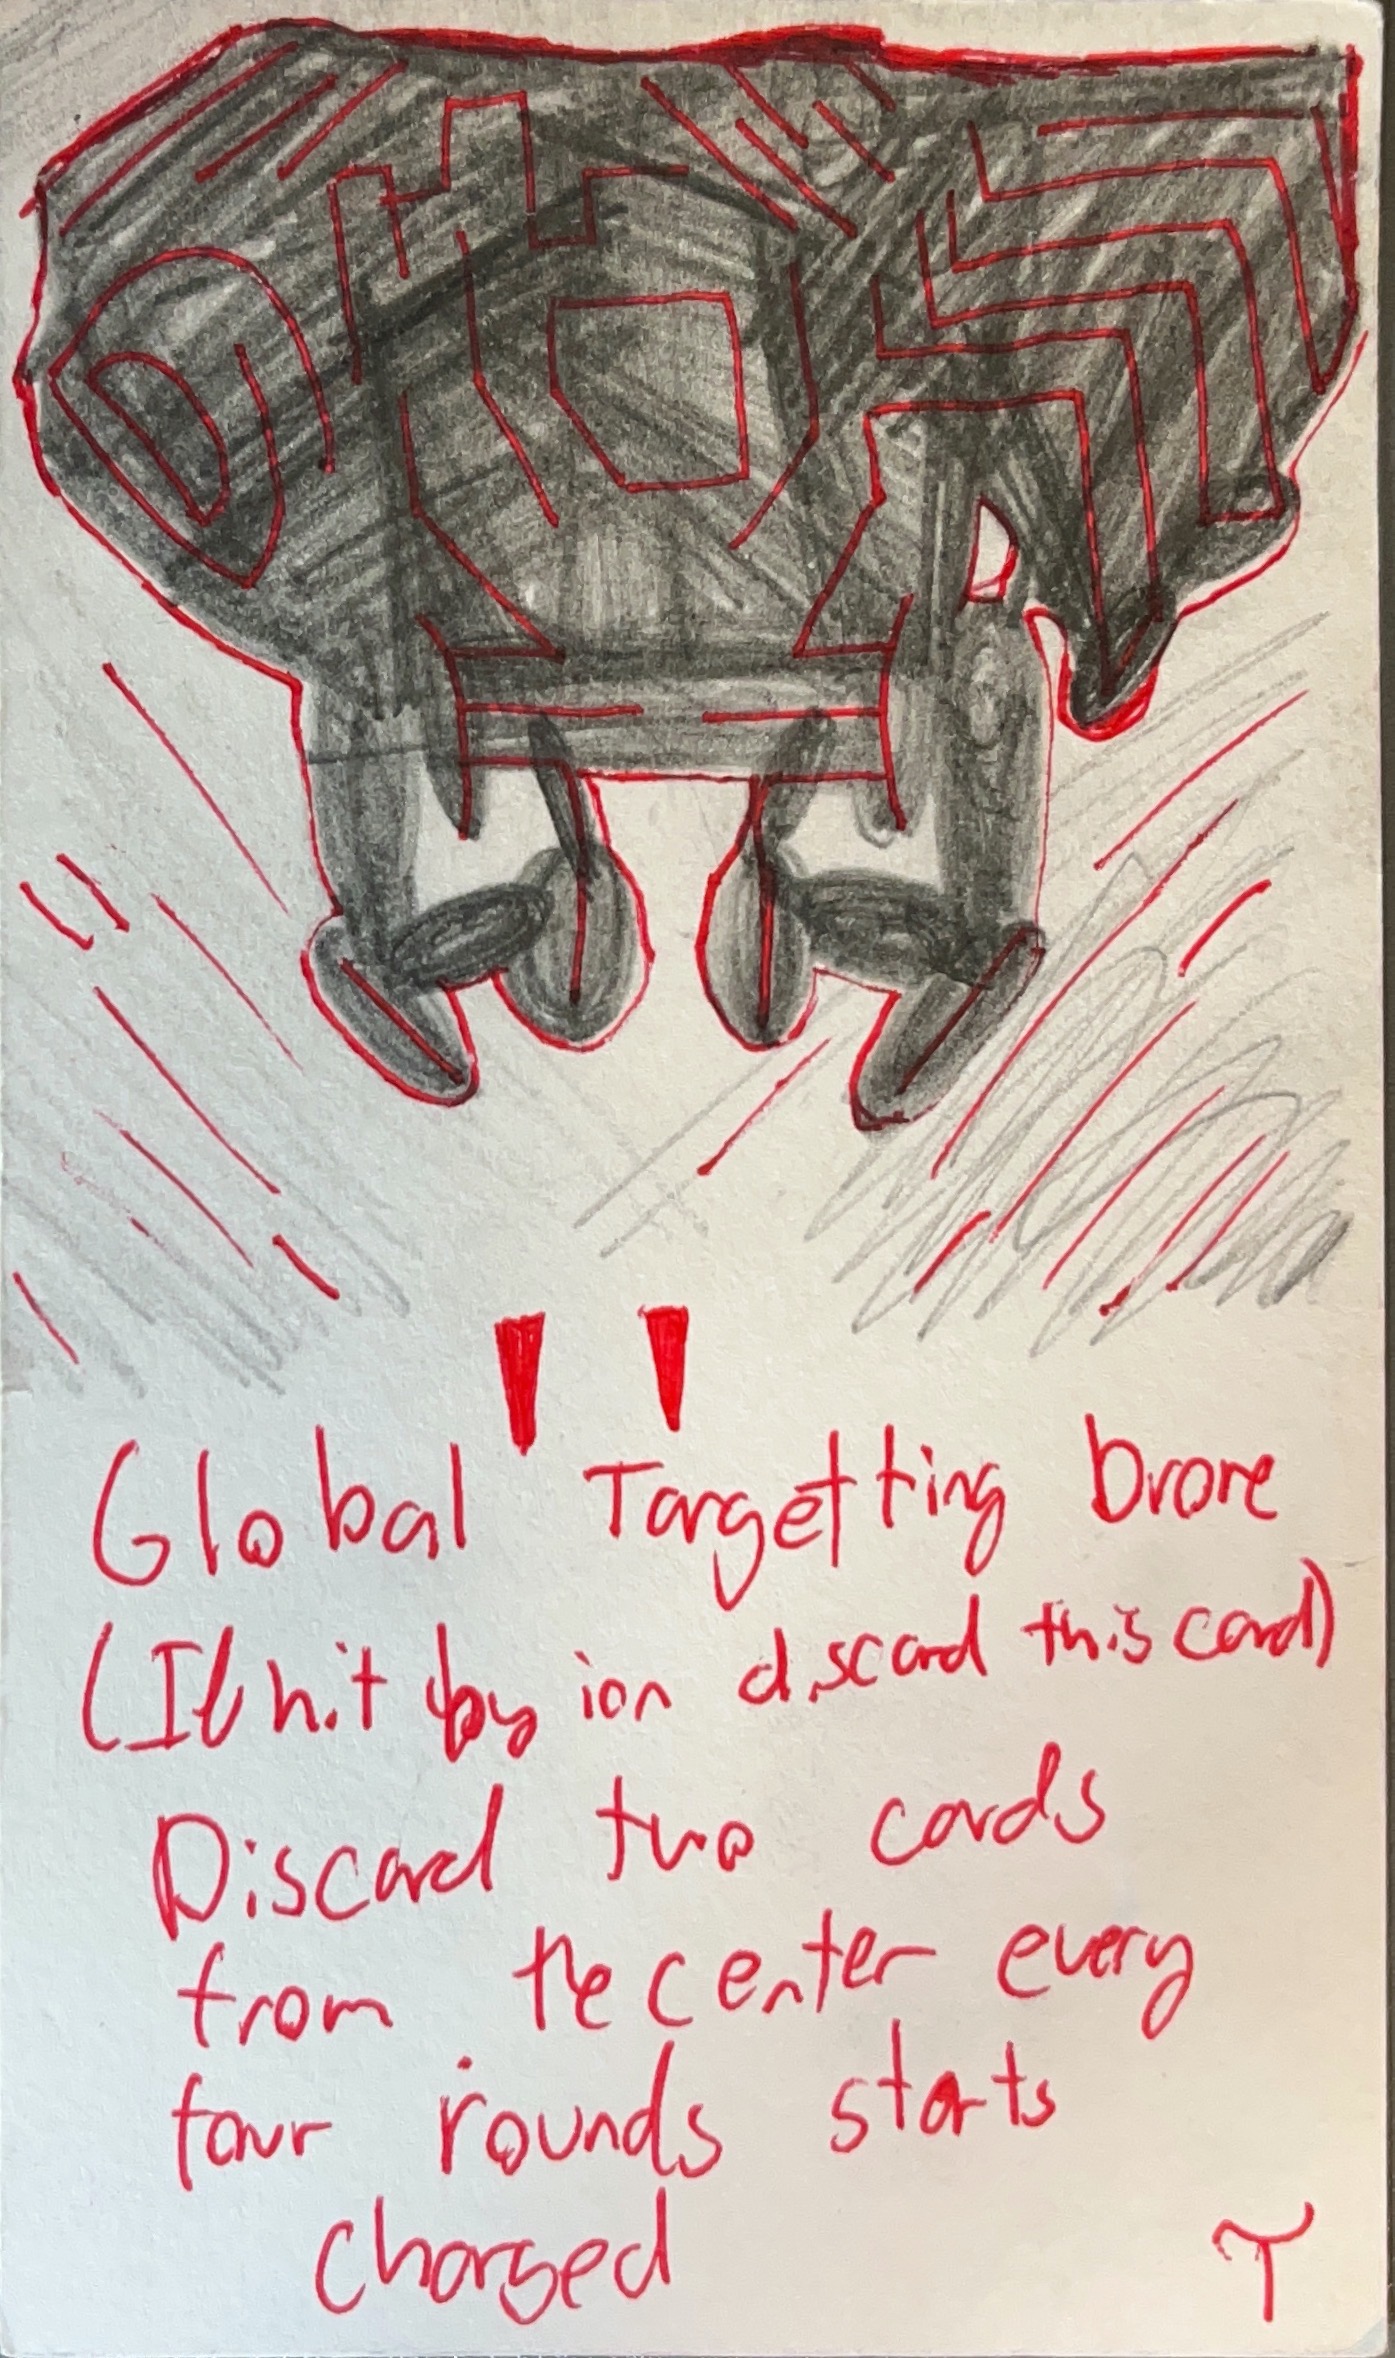 Global Targetting Drone
(If hit by ion discard this card)
Discard two cards
from the center every
four rounds starts
charged
T